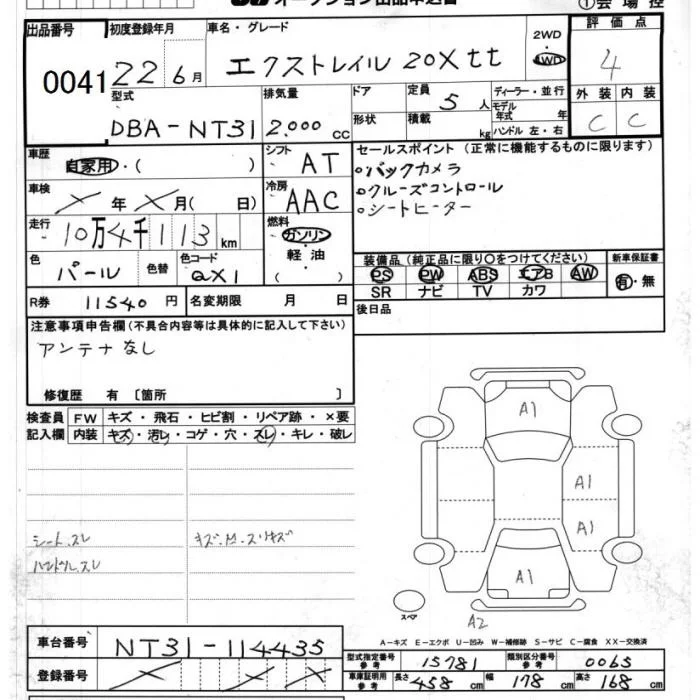 オークション出品申込書
①会場控
出品番号 初度登録年月 車名・グレード 2WD 評価点
0041 22 6月 エクストレイル 20Xtt 4WD 4
型式 排気量 ドア 定員 5人 ディーラー・並行 外装 内装
DBA-NT31 2.000cc 形状 積載 kg モデル年式 年 ハンドル 左・右 C C
車歴 自家用・( ) シフト AT セールスポイント (正常に機能するものに限ります)
車検 ×年×月( 日) 冷房 AAC ○バックカメラ
○クルーズコントロール
○シートヒーター
走行 10万4千113km 燃料 ガソリン 軽油 ( )
色 パール 色替 色コード QX1
装備品(純正品に限り○をつけてください) 新車保証書
PS PW ABS エアB AW 有・無
SR ナビ TV カワ
R券 11540円 名変期限 月 日
後日品
注意事項申告欄(不具合内容等は具体的に記入して下さい)
アンテナなし
修復歴 有 〔箇所 〕
検査員 FW キズ・飛石・ヒビ割・リペア跡・×要
記入欄 内装 キズ・汚レ・コゲ・穴・スレ・キレ・破レ
A1
A1
A1
シート.スレ キズ・凹・スリキズ
ハンドル.スレ
A1
スペア
A2
A-キズ E-エクボ U-凹み W-補修跡 S-サビ C-腐食 XX-交換済
車台番号 NT31-114435
型式指定番号 参考 15781 類別区分番号 参考 0065
登録番号 × × ×
車庫証明用 参考 長さ 458cm 幅 178cm 高さ 168cm